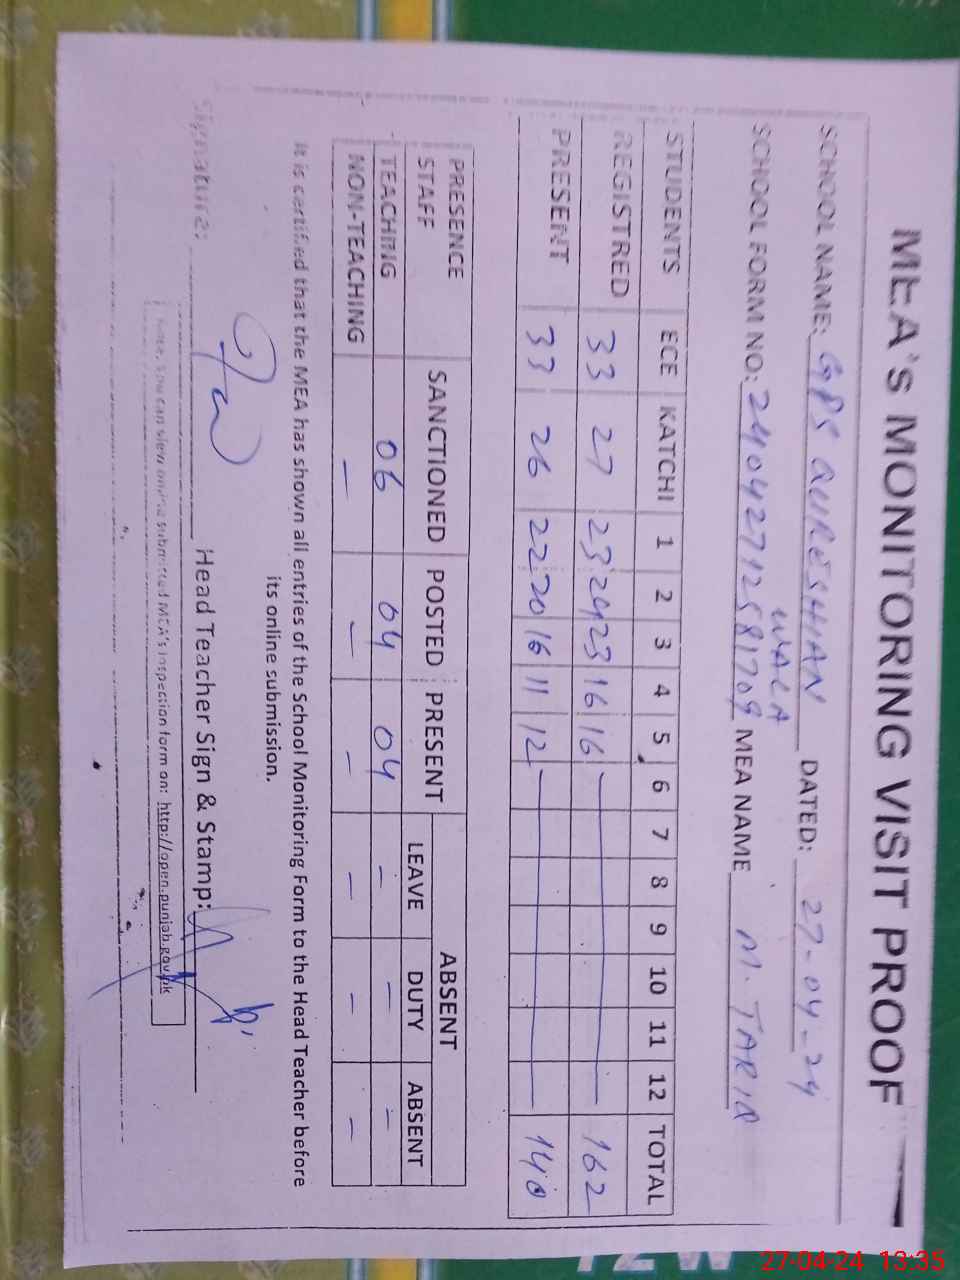 MEA's MONITORING VISIT PROOF
SCHOOL NAME: GPS QURESHIAN WALA DATED: 27-04-24
SCHOOL FORM NO: 24042712581709 MEA NAME M. TARIQ
STUDENTS ECE KATCHI 1 2 3 4 5 6 7 8 9 10 11 12 TOTAL
REGISTRED 33 27 23 24 23 16 16 — 162
PRESENT 33 26 22 20 16 11 12 — 140
PRESENCE STAFF SANCTIONED POSTED PRESENT ABSENT
LEAVE DUTY ABSENT
TEACHING 06 04 04 – – –
NON-TEACHING – – – – – –
It is certified that the MEA has shown all entries of the School Monitoring Form to the Head Teacher before
its online submission.
Signature: Head Teacher Sign & Stamp:
you can view online submitted MEA's inspection form on: http://open.punjab.gov.pk
27-04-24 13:35